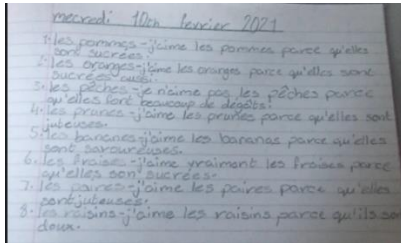 mecredi 10th fevrier 2021
1. les pommes - j'aime les pommes parce qu'elles
sont sucrées.
2. les oranges - j'aime les oranges parce qu'elles sont
sucrées aussi.
3. les pêches - je n'aime pas les pêches parce
qu'elles font beaucoup de dégâts!
4. les prunes - j'aime les prunes parce qu'elles sont
juteuses.
5. les bananes - j'aime les bananas parce qu'elles
sont savoureuses.
6. les fraises - j'aime vraiment les fraises parce
qu'elles son' sucrées.
7. les paires - j'aime les paires parce qu'elles
sont juteuses.
8. les raisins - j'aime les raisins parce qu'ils so
doux.